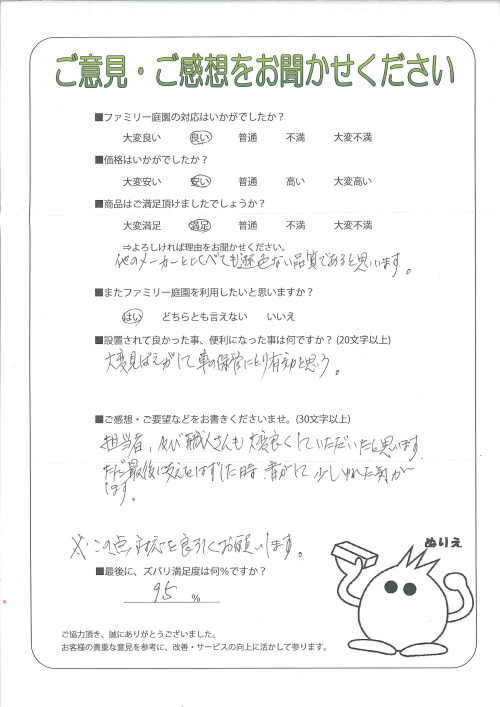 ご意見・ご感想をお聞かせください
■ファミリー庭園の対応はいかがでしたか？
大変良い 良い 普通 不満 大変不満
■価格はいかがでしたか？
大変安い 安い 普通 高い 大変高い
■商品はご満足頂けましたでしょうか？
大変満足 満足 普通 不満 大変不満
⇒よろしければ理由をお聞かせください。
他のメーカーと比べても遜色ない品質であると思います。
■またファミリー庭園を利用したいと思いますか？
はい どちらとも言えない いいえ
■設置されて良かった事、便利になった事は何ですか？(20文字以上)
大変見ばえがして車の保管にとり有効と思う。
■ご感想・ご要望などをお書きくださいませ。(30文字以上)
担当者、及び職人さんも大変良くしていただいたと思います。
ただ最後に支えをはずした時、音がして少しゆれた気が
します。
※この点対応を良引くお願いします。
ぬりえ
■最後に、ズバリ満足度は何%ですか？
95 %
ご協力頂き、誠にありがとうございました。
お客様の貴重な意見を参考に、改善・サービスの向上に活かして参ります。